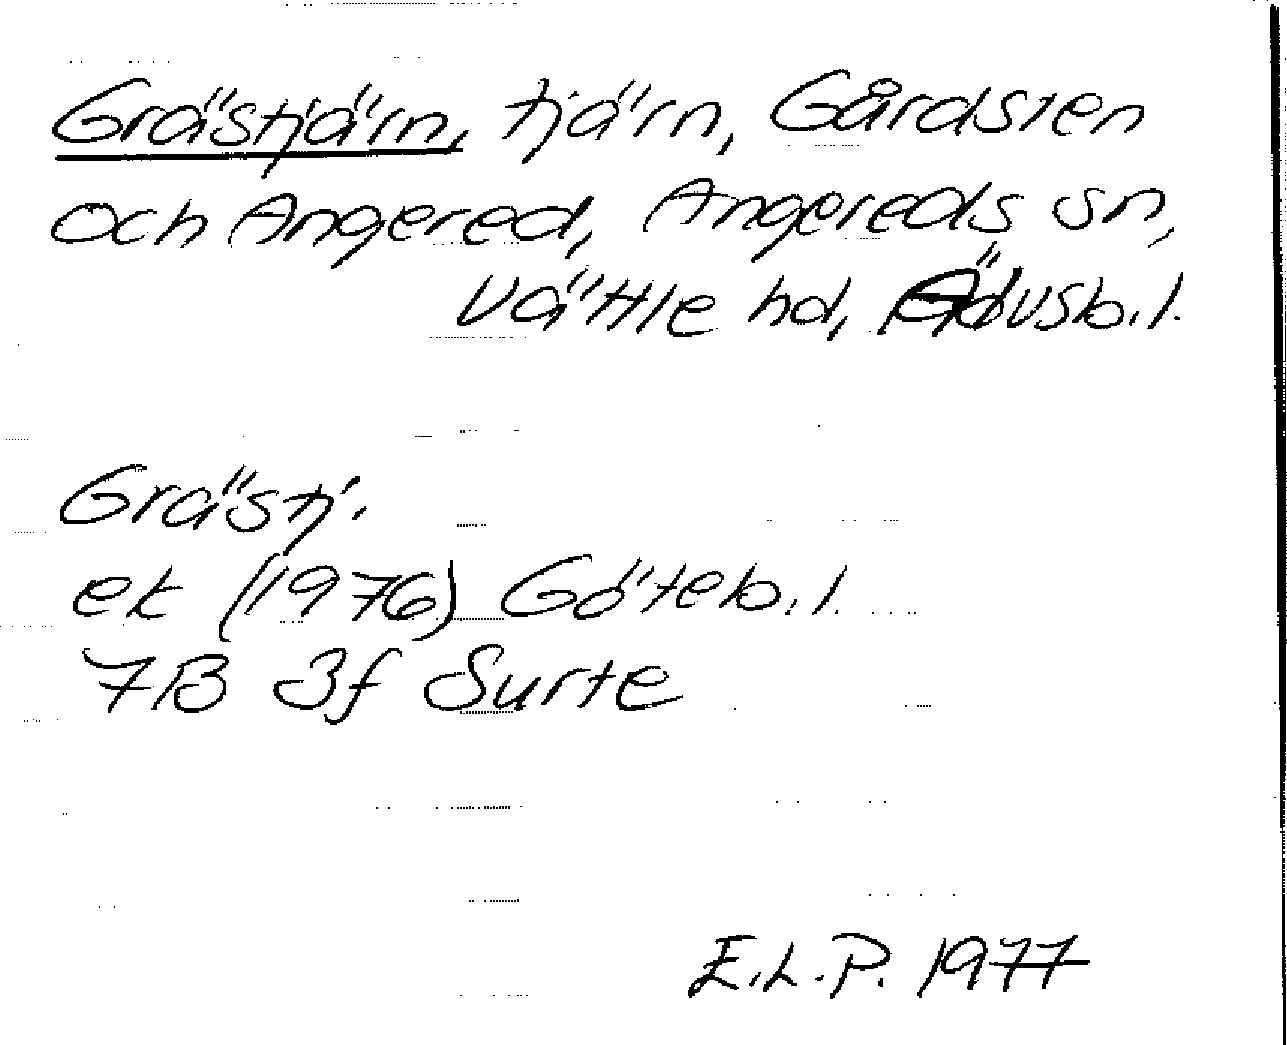 Grästjärn, tjärn, Gårdsten
och Angered, Angereds sn,
Vättle hd, Älvsb. l.
Grästj.
ek (1976) Göteb. l.
7B 3f Surte
E.L.P. 1977